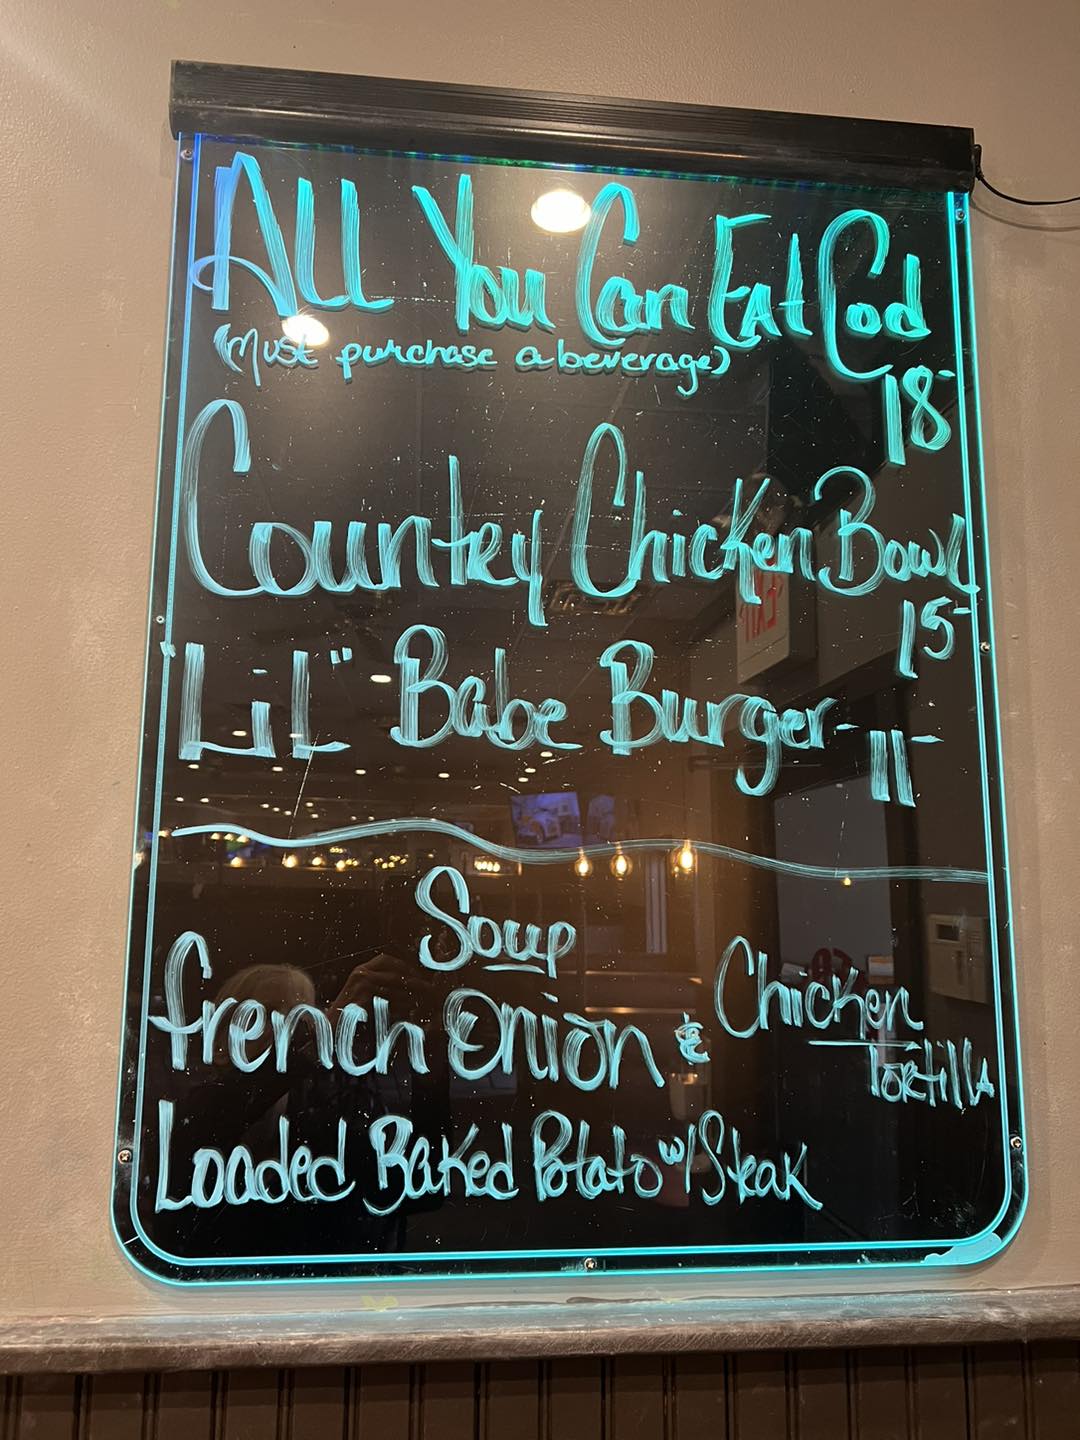 All You Can Eat Cod
(Must purchase a beverage)
18-
Country Chicken Bowl
15-
"LiL" Babe Burger - 11-
Soup
French Onion & Chicken
TORTillA
Loaded Baked Potato w/ Steak
EXIT